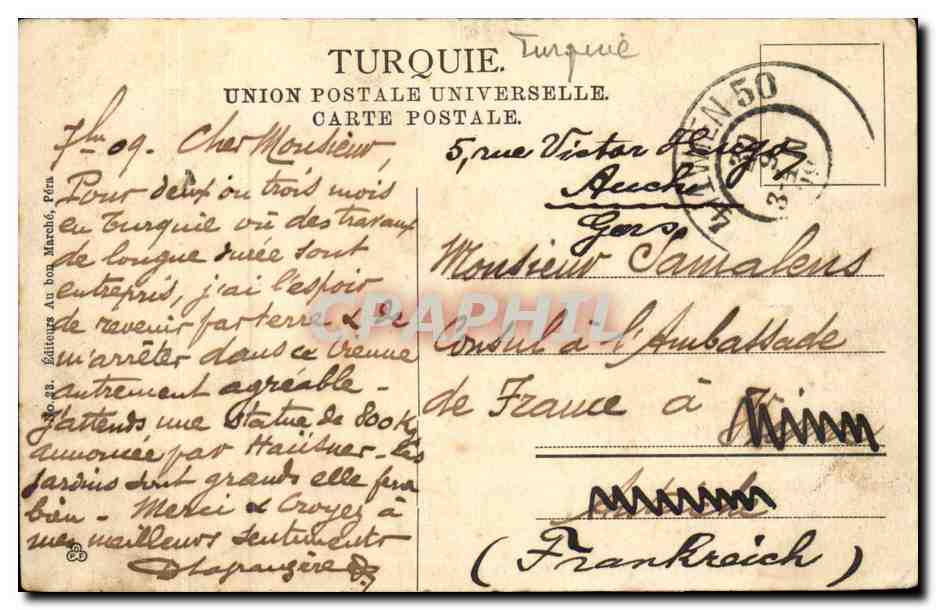 TURQUIE.
Turquie
UNION POSTALE UNIVERSELLE.
CARTE POSTALE.
4/1 WIEN 50
7bre 09. Cher Monsieur,
Pour deux ou trois mois
en Turquie où des travaux
de longue durée sont
entrepris, j'ai l'espoir
de revenir par terre & de
m'arrêter dans ce Vienne
autrement agréable -
J'attends une statue de 800 K
annoncée par Haüsner - les
jardins sont grands elle fera
bien - Merci & Croyez à
mes meilleurs sentiments
DLagrangère
5, rue Victor Hugo,
Auch
Gers,
Monsieur Samalens
Consul à l'Ambassade
de France à
(Frankreich)
No. 23. Éditeurs Au bon Marché, Péra
CPAPHIL